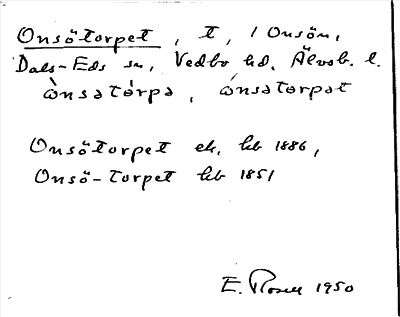 Onsötorpet, t, / Onsön,
Dals-Eds sn, Vedbo hd, Älvsb. l.
ònsətórpə, ónsətorpət
Onsötorpet ek, hb 1886,
Onsö-torpet hb 1851
E. Rosell 1950